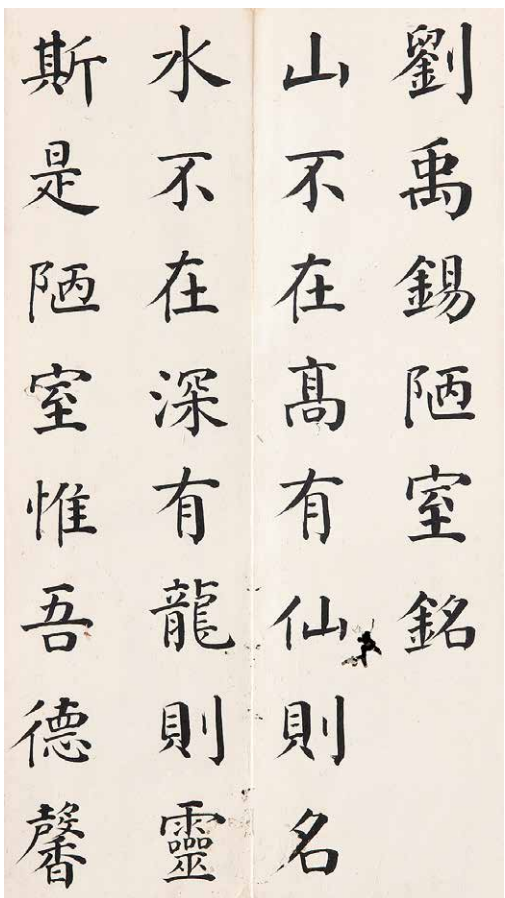 劉禹錫陋室銘
山不在髙有仙則名
水不在深有龍則靈
斯是陋室惟吾德馨